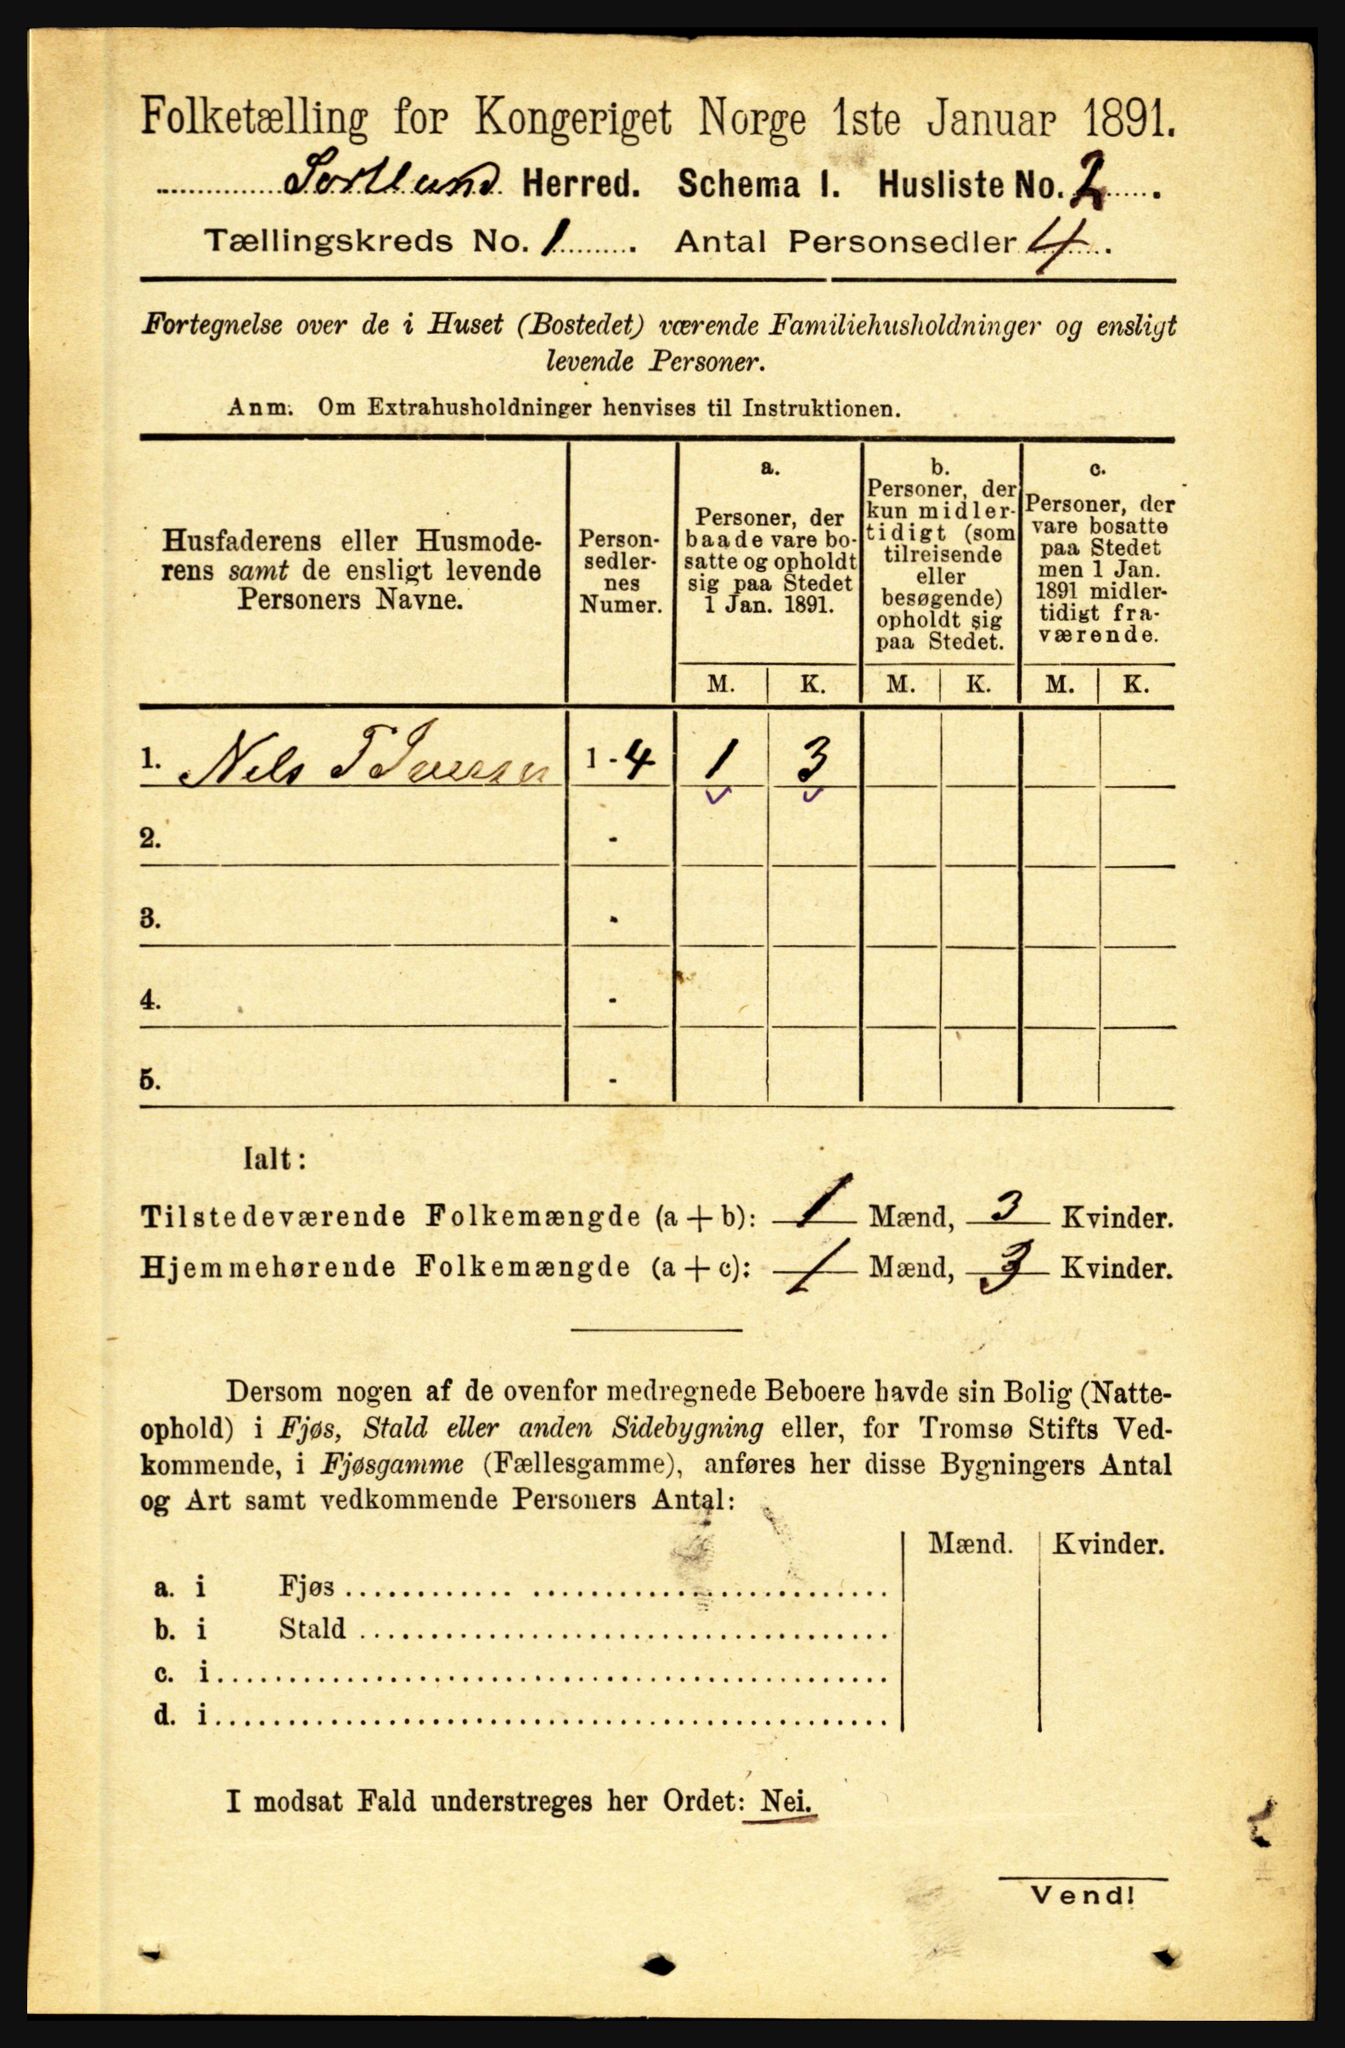 Folketælling for Kongeriget Norge 1ste Januar 1891.
Sortland Herred. Schema I. Husliste No. 2.
Tællingskreds No. 1. Antal Personsedler 4.
Fortegnelse over de i Huset (Bostedet) værende Familiehusholdninger og ensligt
levende Personer.
Anm. Om Extrahusholdninger henvises til Instruktionen.
Husfaderens eller Husmode-
rens samt de ensligt levende
Personers Navne.
Person-
sedler-
nes
Numer.
a.
Personer, der
baade vare bo-
satte og opholdt
sig paa Stedet
1 Jan. 1891.
b.
Personer, der
kun midler-
tidigt (som
tilreisende
eller
besøgende)
opholdt sig
paa Stedet.
c.
Personer, der
vare bosatte
paa Stedet
men 1 Jan.
1891 midler-
tidigt fra-
værende.
M. K. M. K. M. K.
1. Nels T Iversen 1 - 4 1 3
2. -
3. -
4. -
5. -
Ialt:
Tilstedeværende Folkemængde (a + b): 1 Mænd, 3 Kvinder.
Hjemmehørende Folkemængde (a + c): 1 Mænd, 3 Kvinder.
Dersom nogen af de ovenfor medregnede Beboere havde sin Bolig (Natte-
ophold) i Fjøs, Stald eller anden Sidebygning eller, for Tromsø Stifts Ved-
kommende, i Fjøsgamme (Fællesgamme), anføres her disse Bygningers Antal
og Art samt vedkommende Personers Antal:
Mænd. Kvinder.
a. i Fjøs
b. i Stald
c. i
d. i
I modsat Fald understreges her Ordet: Nei.
Vend!